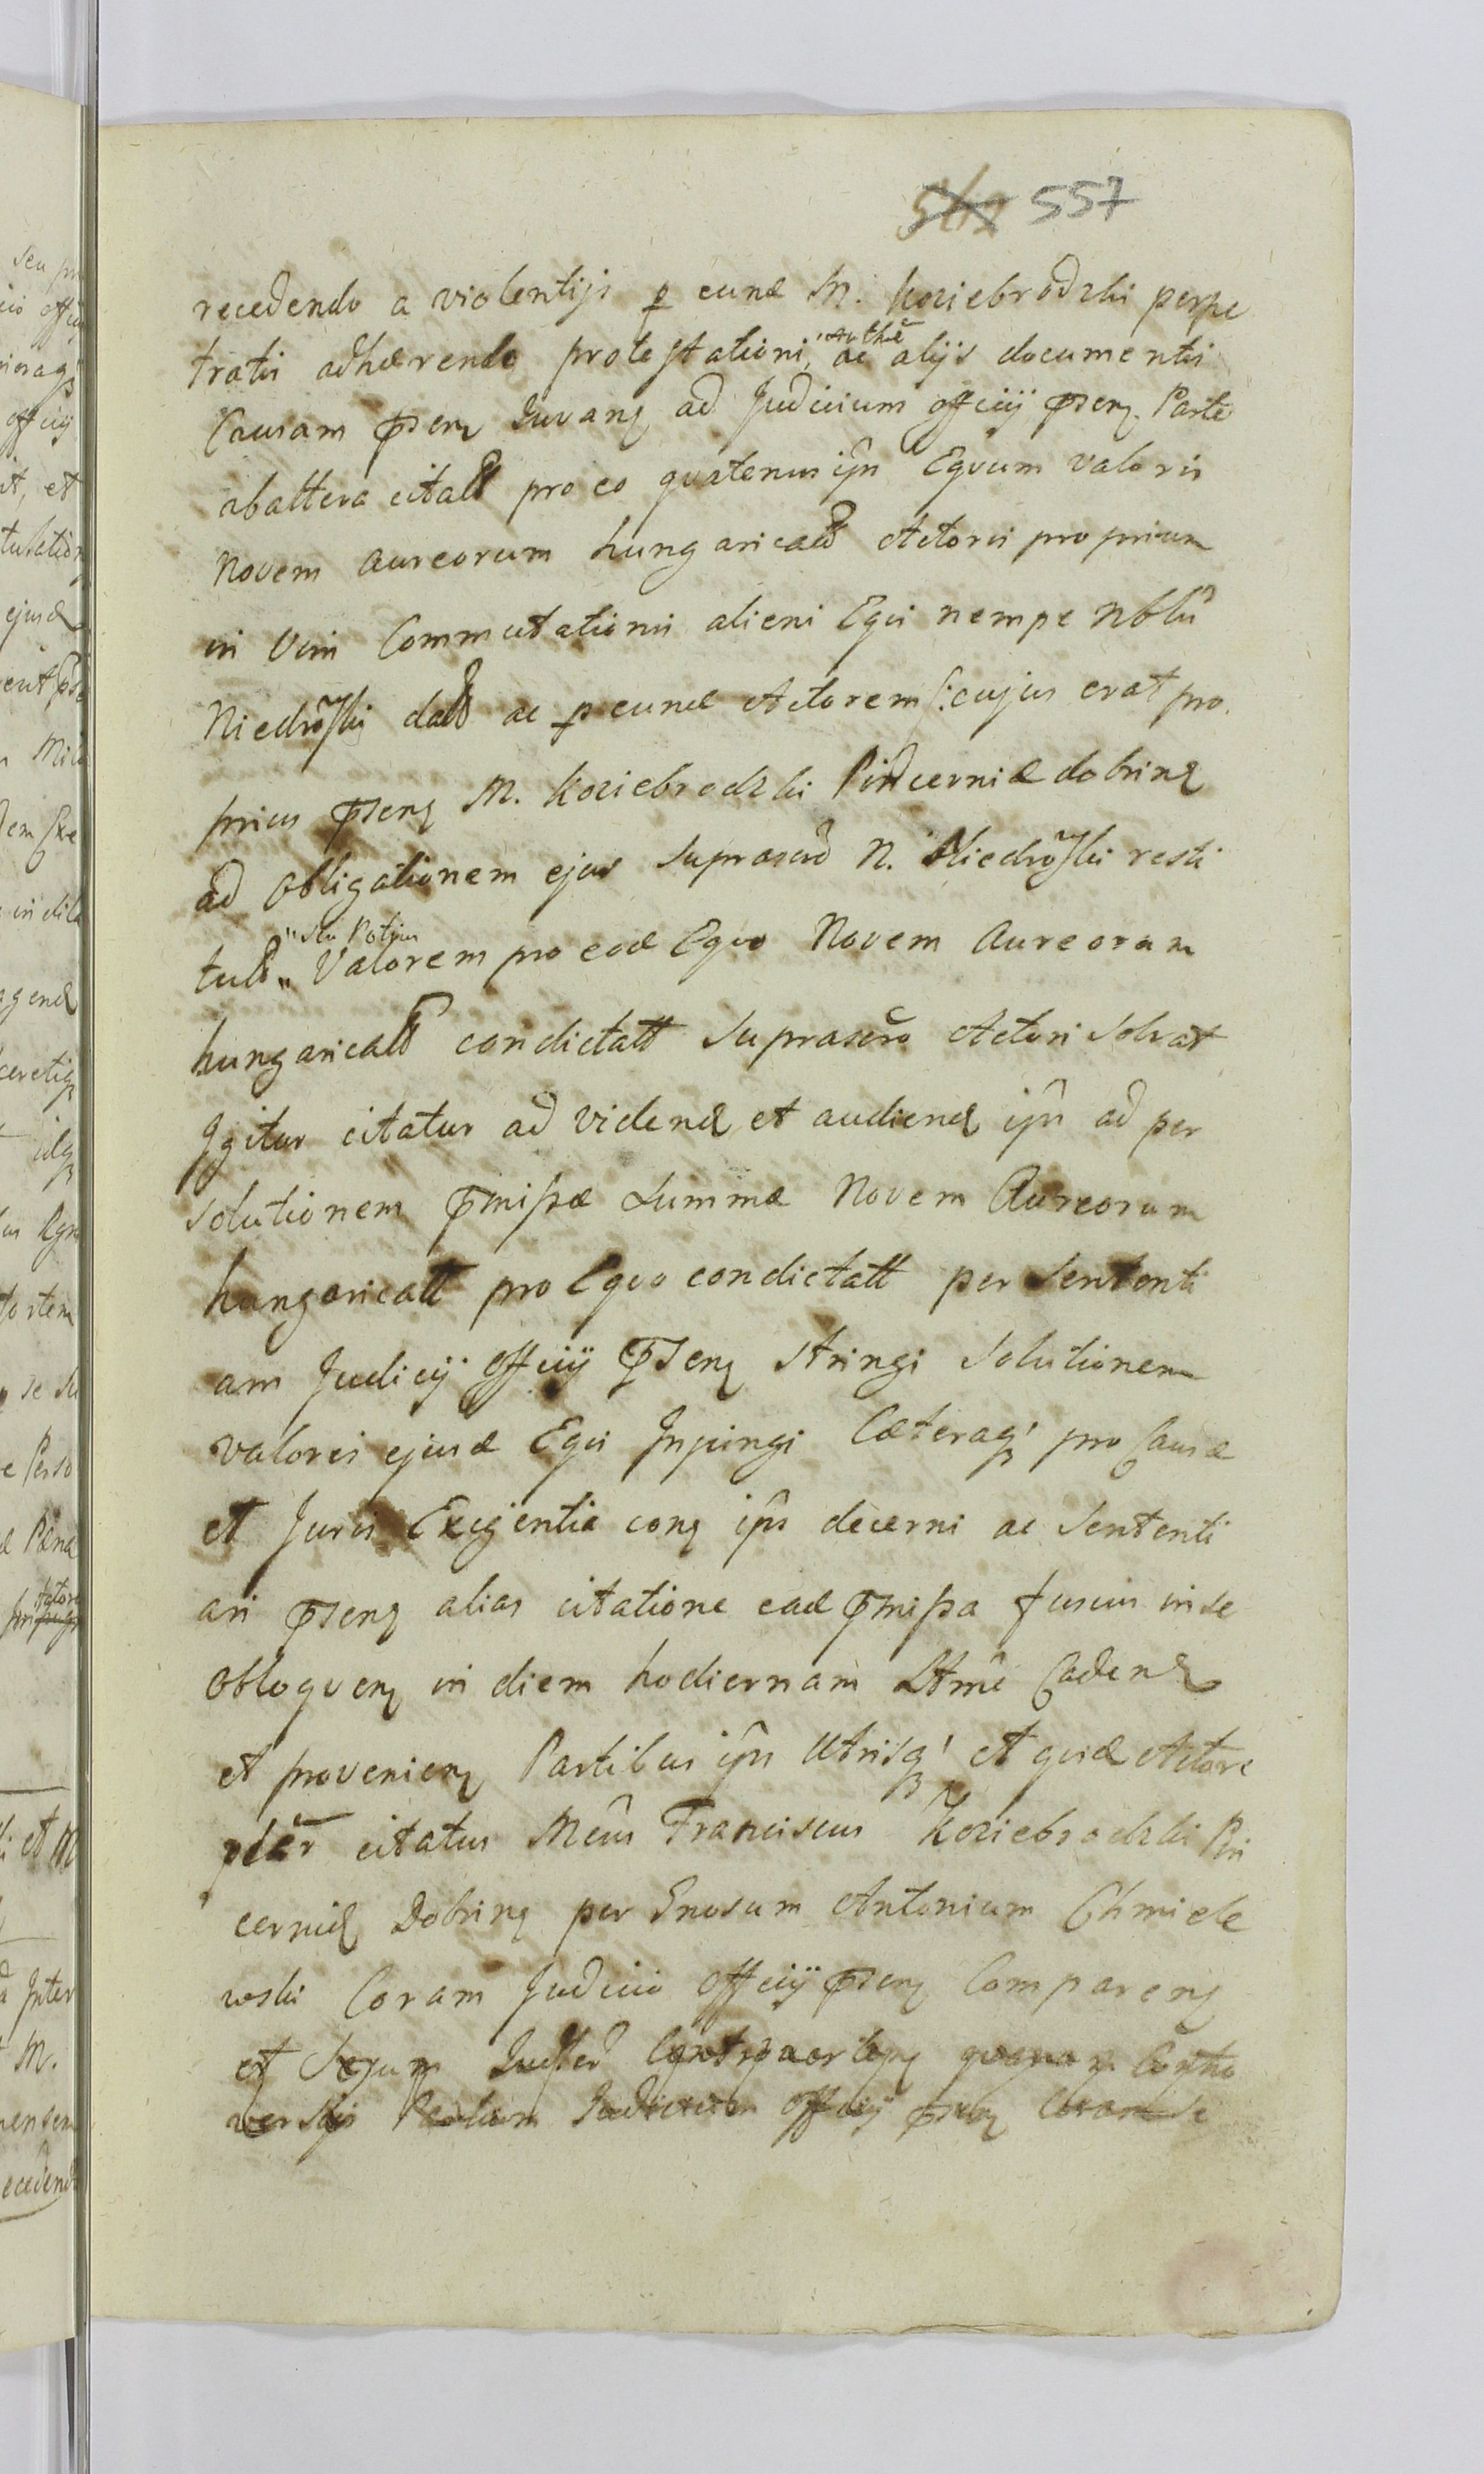 562 557
recedendo a violentijs p eund M. Koziebrodzki perpe
tratis adhærendo protestationi, "Authẽ ac alijs documentis
Causam psenz Juvanz ad Judicium officij psenz. Parte
abattera citatt pro eo quatenus ipŝe Equum valoris
Novem aureorum hungaricatt Actoris proprium
in Vim Commutationis alieni Equi nempe Nblis
Niedrõski datt ac p eund Actorem /: cujus erat pro
prius psenz M. Koziebrodzki Pincernid dobrinz
ad obligationem ejus suprascrd N. Niedrõski resti
tutt "seu Potius" Valorem pro eod Equo Novem Aureorum
hungaricatt condictatt suprascrõ Actori solvat
Igitur citatur ad videnD et audienD ipŝe ad per
solutionem pmissæ summæ Novem Aureorum
hungaricatt pro Equo condictatt per Sententi
am Judicij officij psenz stringi solutionem
valoris ejusd Equi Injungi Cæteraq; pro Causæ
et Juris Exigentia conz ipŝ decerni ac Sententi
ari psenz alias citatione ead pmissa fusius in se
obloquenz in diem hodiernam Lttmẽ CadenD
et provenienz Partibus ipŝs Utrisq; et quid Actore
citatus Mcũs Franciscus Koziebrodzki Pin
cernid Dobrinz per Gnosum Antonium Chmiele
wski Coram Judicio officij psenz Comparenz
et
officij psenz Coram se